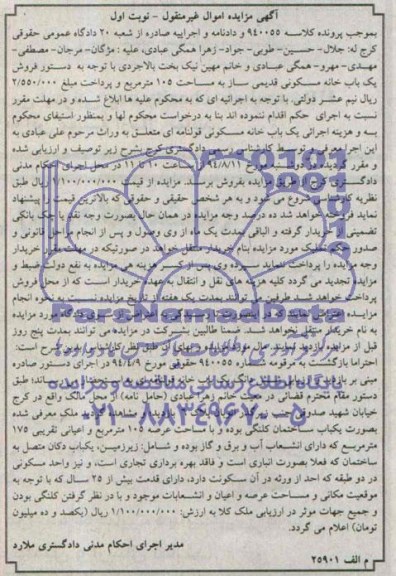 آگهی مزایده اموال غیرمنقول - نوبت اول
بموجب پرونده کلاسه ۹۴۰۰۵۵ و دادنامه و اجراییه صادره از شعبه ۲۰ دادگاه عمومی حقوقی
کرج له: جلال- حسین- طوبی- جواد- زهرا همگی عبادی، علیه : مژگان- مرجان- مصطفی-
مهدی- مهرو- همگی عبادی و خانم مهین نیک بخت بالاجردی با توجه به دستور فروش
یک باب خانه مسکونی قدیمی ساز به مساحت ۱۰۵ مترمربع و پرداخت مبلغ ۲/۵۵۰/۰۰۰
ریال نیم عشر دولتی. با توجه به اجرائیه ای که به محکوم علیه ها ابلاغ شده و در مهلت مقرر
نسبت به اجرای حکم اقدام ننموده اند بنا به درخواست محکوم لها و بمنظور استیفای محکوم
به و هزینه اجرائی یک باب خانه مسکونی قولنامه ای متعلق به وراث مرحوم علی عبادی به
این اجرا معرفی و توسط کارشناس رسمی دادگستری کرج بشرح زیر توصیف و ارزیابی شده
و مقرر گردیده در روز مورخ ۹۴/۸/۱۱ از ساعت ۱۰ تا ۱۱ در محل اجرای احکام مدنی
دادگستری کرج از طریق مزایده بفروش برسد. مزایده از قیمت ۱/۱۰۰/۰۰۰/۰۰۰ ریال طبق
نظریه کارشناسی شروع می شود و به هر شخص حقیقی و حقوقی که بالاترین قیمت را پیشنهاد
نماید فروخته خواهد شد ده درصد وجه مزایده در همان حال بصورت وجه نقد یا چک بانکی
تضمینی از خریدار گرفته و الباقی بمدت یک ماه از وی وصول و پس از انجام مراحل قانونی و
صدور حکم تملیک مورد مزایده بنام خریدار منتقل خواهد در صورتیکه در مهلت مقرر خریدار
وجه مزایده را پرداخت ننماید سپرده وی پس از کسر هزینه های مزایده به نفع دولت ضبط و
مزایده تجدید می گردد کلیه هزینه های نقل و انتقال به عهده خریدار است که از محل فروش
پرداخت خواهد شد طرفین می توانند بمدت یک هفته از تاریخ مزایده نسبت به نحوه انجام
به نام خریدار منتقل نخواهد شد. ضمنا طالبین بشرکت در مزایده می توانند بمدت پنج روز
قبل از مزایده بازدید نمایند.
احتراما بازگشت به مرقومه شماره ۹۴۰۰۵۵ حقوقی مورخ ۹۴/۴/۹ در اجرای دستور صادره
دستور مقام محترم قضائی در معیت خانم زهرا عبادی (حامل نامه) از محل مالک واقع در کرج
خیابان شهید صدوقی بازدید و مشاهده گردید ملک معرفی شده
بصورت یکباب ساختمان کلنگی بوده و با مساحت عرصه ۱۰۵ مترمربع و اعیانی تقریبی ۱۷۵
مترمربع که دارای انشعاب آب و برق و گاز بوده و شامل: زیرزمین، یکباب دکان متصل به
ساختمان که فعلا بصورت انباری است و فاقد بهره برداری تجاری است، و نیز واحد مسکونی
در دو طبقه که احد از ورثه در آن سکونت دارد، دارای قدمت بیش از ۲۵ سال که با توجه به
موقعیت مکانی و مساحت عرصه و اعیان و انشعابات موجود و با در نظر گرفتن کلنگی بودن
و جمیع جهات موثر در ارزیابی ملک کلا به ارزش: ۱/۱۰۰/۰۰۰/۰۰۰ ریال (یکصد و ده میلیون
تومان) اعلام می گردد.
مدیر اجرای احکام مدنی دادگستری ملارد
م الف ۲۵۹۰۱
پایگاه اطلاع رسانی مناقصه و مزایده
۰۲۱-۸۸۳۴۹۶۷۰-۵